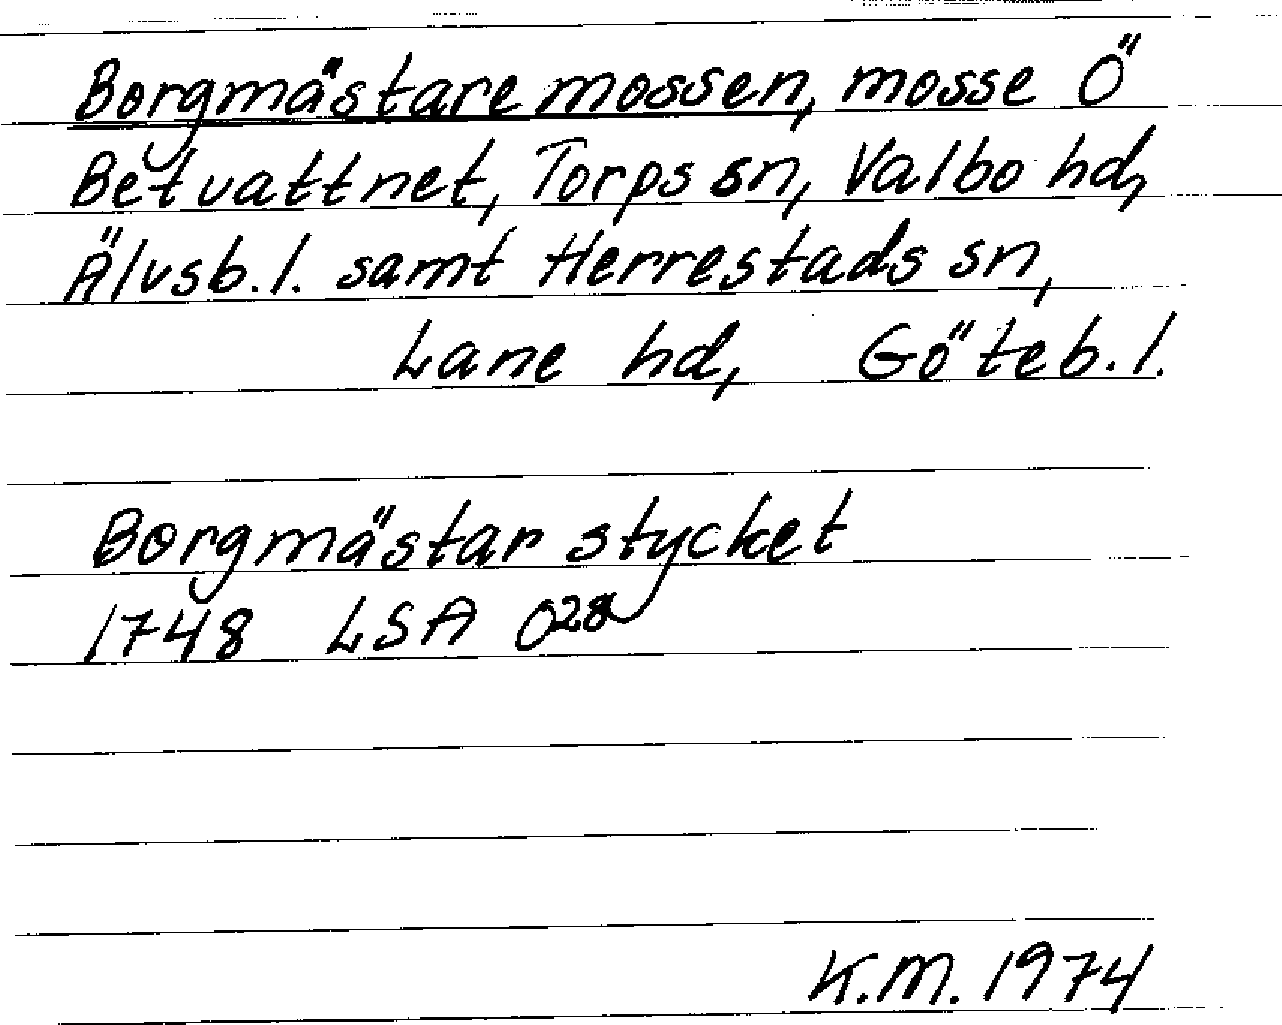 Borgmästaremossen, mosse Ö
Betvattnet, Torps sn, Valbo hd,
Älvsb. l. samt Herrestads sn,
Lane hd, Göteb. l.
Borgmästarstycket
1748 LSA O28
K.M. 1974